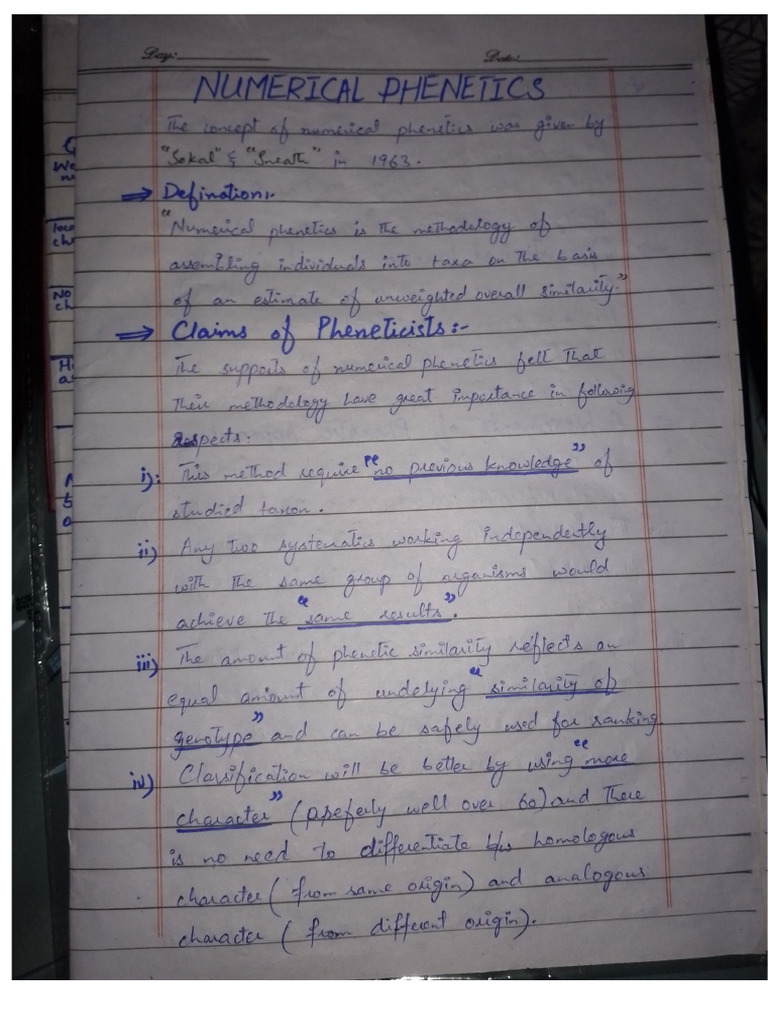 Day:
Date:
NUMERICAL PHENETICS
The concept of numerical phenetics was given by
"Sokal" & "Sneath" in 1963.
⇒ Defination:-
"Numerical phenetics is the methodology of
assembling individuals into taxa on the basis
of an estimate of unweighted overall similarity."
⇒ Claims of Pheneticists:-
The supports of numerical phenetics felt that
their methodology have great importance in following
aspects.
i): This method require "no previous knowledge" of
studied taxon.
ii) Any two systematics working independently
with the same group of organisms would
achieve the "same results".
iii) The amount of phenetic similarity reflects an
equal amount of undelying "similarity of
genotype" and can be safely used for ranking.
iv) Classification will be better by using "more
character" (preferly well over 60) and there
is no need to differentiate b/w homologous
character (from same origin) and analogous
character (from different origin).